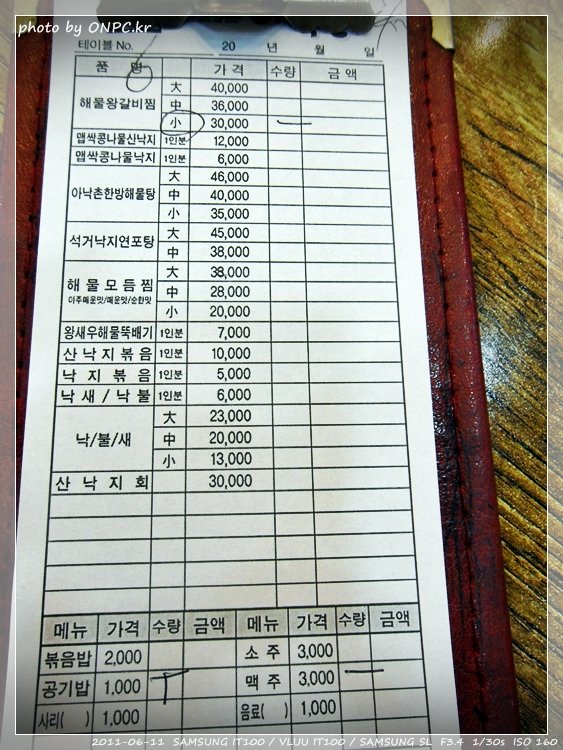 photo by ONPC.kr
테이블 No. 20 년 월 일
품 명 가 격 수량 금 액
해물왕갈비찜 大 40,000
中 36,000
小 30,000 一
맵싹콩나물산낙지 1인분 12,000
맵싹콩나물낙지 1인분 6,000
아낙촌한방해물탕 大 46,000
中 40,000
小 35,000
석거낙지연포탕 大 45,000
中 38,000
해 물 모 듬 찜 大 38,000
아주매운맛/매운맛/순한맛 中 28,000
小 20,000
왕새우해물뚝배기 1인분 7,000
산 낙 지 볶 음 1인분 10,000
낙 지 볶 음 1인분 5,000
낙 새 / 낙 불 1인분 6,000
낙/불/새 大 23,000
中 20,000
小 13,000
산 낙 지 회 30,000
메뉴 가격 수량 금액 메뉴 가격 수량 금액
볶음밥 2,000 소 주 3,000
공기밥 1,000 T 맥 주 3,000 一
사리( ) 1,000 음료( ) 1,000
2011-06-11 SAMSUNG IT100 / VLUU IT100 / SAMSUNG SL F3.4 1/30s ISO 160